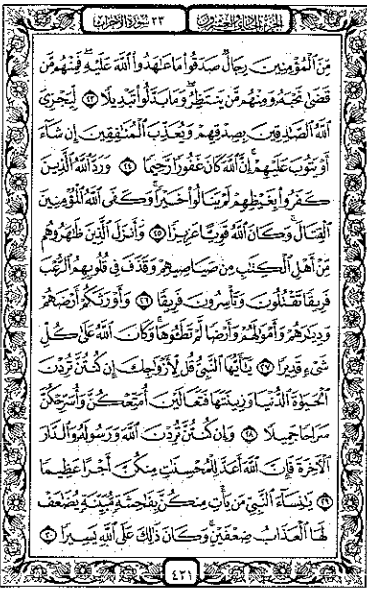 الجزء الحادي والعشرون
٣٣ سورة الأحزاب
مِّنَ ٱلْمُؤْمِنِينَ رِجَالٌ صَدَقُوا۟ مَا عَـٰهَدُوا۟ ٱللَّهَ عَلَيْهِ ۖ فَمِنْهُم مَّن
قَضَىٰ نَحْبَهُۥ وَمِنْهُم مَّن يَنتَظِرُ ۖ وَمَا بَدَّلُوا۟ تَبْدِيلًا ٢٣ لِّيَجْزِىَ
ٱللَّهُ ٱلصَّـٰدِقِينَ بِصِدْقِهِمْ وَيُعَذِّبَ ٱلْمُنَـٰفِقِينَ إِن شَآءَ
أَوْ يَتُوبَ عَلَيْهِمْ ۚ إِنَّ ٱللَّهَ كَانَ غَفُورًا رَّحِيمًا ٢٤ وَرَدَّ ٱللَّهُ ٱلَّذِينَ
كَفَرُوا۟ بِغَيْظِهِمْ لَمْ يَنَالُوا۟ خَيْرًا ۚ وَكَفَى ٱللَّهُ ٱلْمُؤْمِنِينَ
ٱلْقِتَالَ ۚ وَكَانَ ٱللَّهُ قَوِيًّا عَزِيزًا ٢٥ وَأَنزَلَ ٱلَّذِينَ ظَـٰهَرُوهُم
مِّنْ أَهْلِ ٱلْكِتَـٰبِ مِن صَيَاصِيهِمْ وَقَذَفَ فِى قُلُوبِهِمُ ٱلرُّعْبَ
فَرِيقًا تَقْتُلُونَ وَتَأْسِرُونَ فَرِيقًا ٢٦ وَأَوْرَثَكُمْ أَرْضَهُمْ
وَدِيَـٰرَهُمْ وَأَمْوَٰلَهُمْ وَأَرْضًا لَّمْ تَطَـُٔوهَا ۚ وَكَانَ ٱللَّهُ عَلَىٰ كُلِّ
شَىْءٍ قَدِيرًا ٢٧ يَـٰٓأَيُّهَا ٱلنَّبِىُّ قُل لِّأَزْوَٰجِكَ إِن كُنتُنَّ تُرِدْنَ
ٱلْحَيَوٰةَ ٱلدُّنْيَا وَزِينَتَهَا فَتَعَالَيْنَ أُمَتِّعْكُنَّ وَأُسَرِّحْكُنَّ
سَرَاحًا جَمِيلًا ٢٨ وَإِن كُنتُنَّ تُرِدْنَ ٱللَّهَ وَرَسُولَهُۥ وَٱلدَّارَ
ٱلْـَٔاخِرَةَ فَإِنَّ ٱللَّهَ أَعَدَّ لِلْمُحْسِنَـٰتِ مِنكُنَّ أَجْرًا عَظِيمًا
٢٩ يَـٰنِسَآءَ ٱلنَّبِىِّ مَن يَأْتِ مِنكُنَّ بِفَـٰحِشَةٍ مُّبَيِّنَةٍ يُضَـٰعَفْ
لَهَا ٱلْعَذَابُ ضِعْفَيْنِ ۚ وَكَانَ ذَٰلِكَ عَلَى ٱللَّهِ يَسِيرًا ٣٠
٤٢١